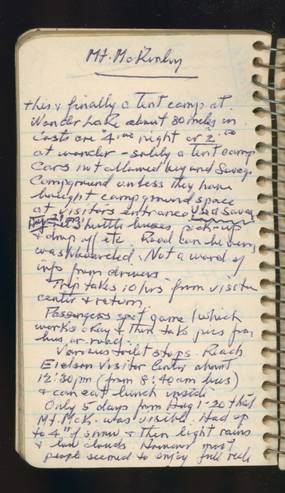 Mt. McKinley
this & finally a tent camp at
Wonder Lake about 80 miles in.
Costs are 4.00 night or 2.00
at wonder - solely a tent camp
Cars not allowed beyond Savage
Campground unless they have
bought campground space
at Visitors entrance
shuttle buses pick-up
& drop off etc. Road can be very
washboarded. Not a word of
info from drivers
Trip takes 10 hrs from visitor
center & return.
Passengers spot game (which
works okay & then take pics from
bus, or road.
Various toilet stops. Reach
Eielson Visitor Center about
12:30pm (from 8:40am bus)
& can eat lunch inside
Only 5 days from Aug 1-20 that
Mt. McK. was visible. Had up
to 4" of snow & then light rains
& low clouds. However most
people seemed to enjoy